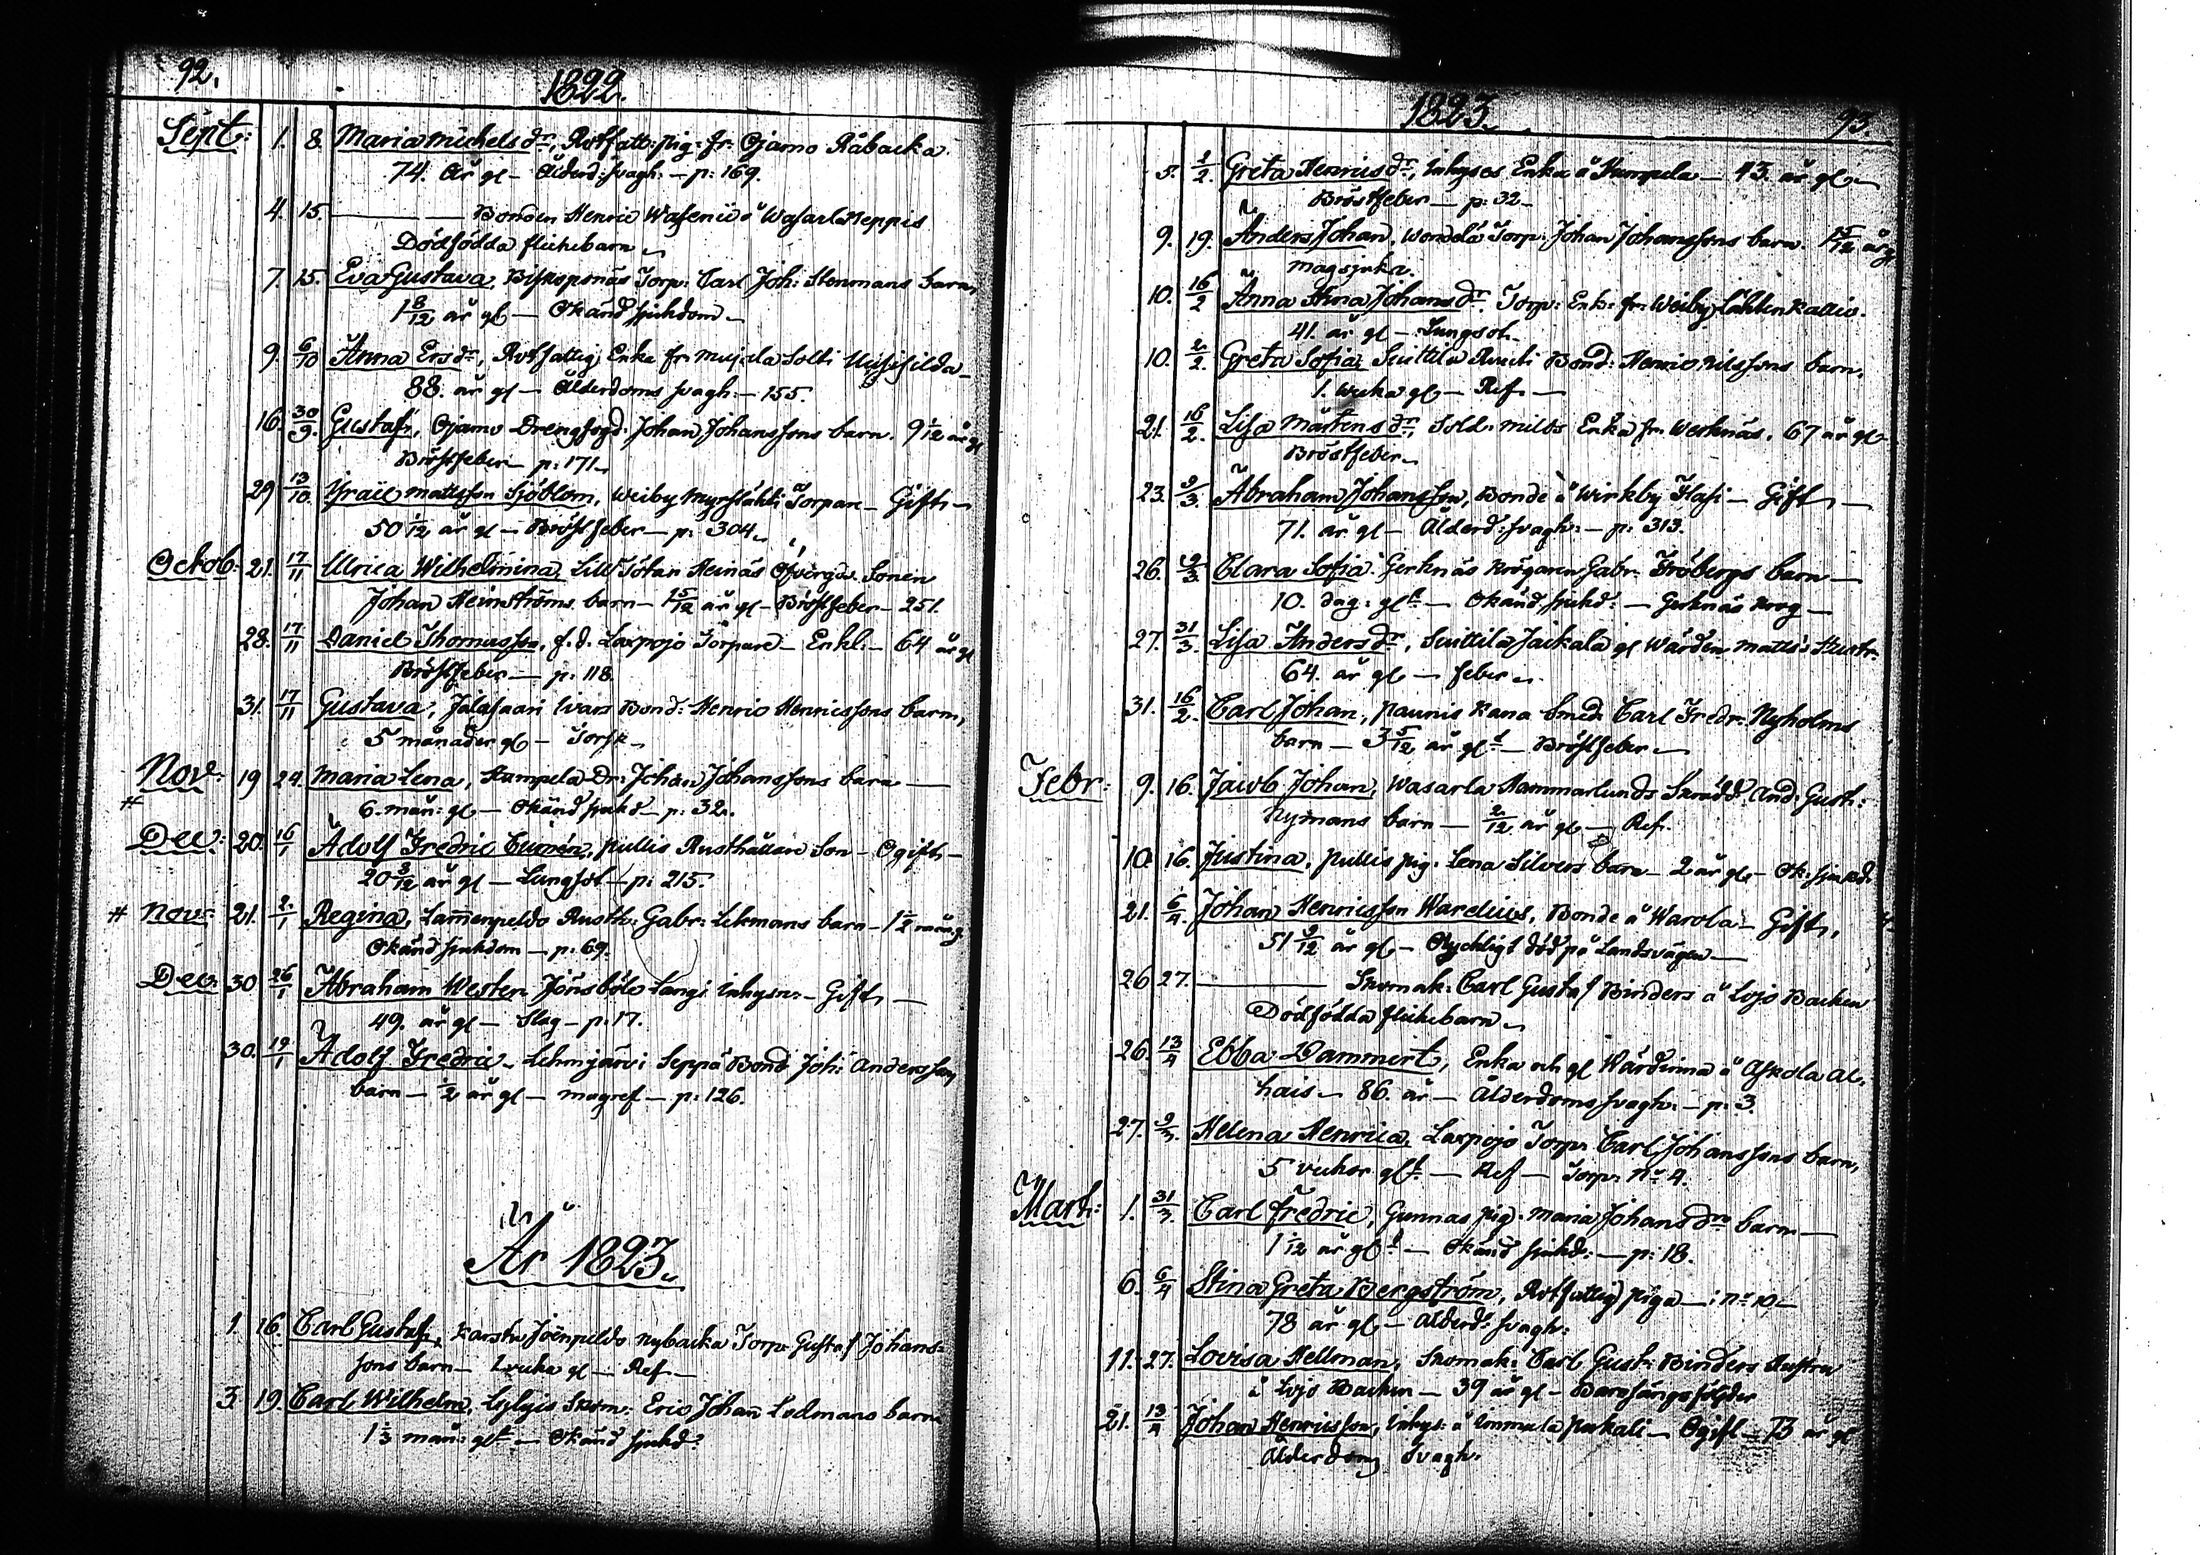 92.
1822.
Sept: 1. 8. Maria Michels dr, Rotfatt: pig: fr: Ojamo Råbacka.
74. År gl – Ålderd: svagh: – p: 169.
4. 15. ——— Bonden Henric Wasenii å Wasarla Seppis
Dödfödda flickebarn
7. 15. Eva Gustava, Biskopsnäs Torp: Carl Joh: Stenmans barn,
1 8/12 år gl – Okänd sjukdom –
9. 6/10 Anna Ers dr, Rotfattig Enka fr: Mujala Solti
88. år gl – Ålderdoms svagh: – 155.
16. 30/9. Gustaf, Ojamo Drengfogd: Johan Johanssons barn. 9 1/12 år gl
Bröstfeber – p: 171
29 13/10. Israel Mattsson Sjöblom, Weiby Myrslähti Torpare – Gift –
50 1/12 år gl – Bröstfeber – p: 304
Octob: 21. 17/11 Ulrica Wilhelmina, Lill Tötar Heinäs Sonen
Johan Heinströms barn – 1 5/12 år gl – Bröstfeber – 251.
28. 17/11 Daniel Thomasson, f.d. Laxpojo Torpare – Enkl: – 64 år gl
Bröstfeber – p: 118.
31. 17/11 Gustava, Jalasaari Ivars Bond: Henric Henricssons barn,
5 månader gl – Torsk –
Nov: 19 24. Maria Lena, Humpela Dr: Johan Johanssons barn —
6. mån: gl – Okänd sjukd – p: 32.
# Dec: 20. 16/1 Adolf Fredric Cumén, Pullis Rusthållare Son – Ogift –
20 3/12 år gl – Lungsot – p: 215.
# Nov: 21. 2/1 Regina, Lammenpeldo Rusth: Gabr: Lehmans barn – 1 1/2 mån: g
Okänd sjukdom – p: 69.
Dec: 30 26/1 Abraham Wester Jönsböle Langi Inhysn: – Gift –
49. år gl – Slag – p: 17.
30. 19/1 Adolf Fredric – Lehmjärvi Seppä Bond Joh: Anderssons
barn – 1/2 år gl – magref – p: 126.
År 1823.
1. 16. Carl Gustaf, Karstu Joenpeldo Nybacka Torp: Gustaf Johans-
sons barn – 1 vecka gl – Ref –
3. 19. Carl Wilhelm, Lylyis Skom: Eric Johan Lodmans barn
1 1/3 mån: glt – Okänd sjukd:
1823. 93.
5. 1/2. Greta Henrics dr, Inhyses Enka å Humpela – 43. år gl –
Bröstfeber – p: 32 –
9. 19. Anders Johan, Wondelä Torp: Johan Johanssons barn. 1 5/12 år gl
magsjuka.
10. 16/2 Anna Stina Johans dr Torp: Enk: fr: Weiby Lähtenkallio.
41. år gl – Lungsot –
10. 2/2. Greta Sofia, Suittila Ruuti Bond: Henric Nilssons barn,
1. vecka gl – Ref –
21. 16/2. Lisa Mårtens dr, Sold: Milds Enka fr: Werknäs. 67 år gl –
Bröstfeber –
23. 9/3. Abraham Johansson, Bonde å Wirkby Hasi – Gift –
71. år gl – Ålderd: svagh: – p: 313.
26. 9/3 Clara Sofia Gerknäs Krögaren Gabr: Fröbergs barn –
10. dag: glt – Okänd sjukd: – Gerknäs Krog –
27. 31/3. Lisa Anders dr, Suittila Jaikala gl Wärden Matts's Hustr:
64. år gl – feber –
31. 16/2. Carl Johan, Paunis Kana Smed Carl Fredr: Nyholms
barn – 3 5/12 år glt – Bröstfeber –
Febr: 9. 16. Jacob Johan, Wasarla Hammarlunds Skrädd: And: Gust:
Nymans barn – 2/12 år gl – Ref.
10. 16. Justina, Pullis pig: Lena Silvers barn – 2 år gl – Ok: sjukd:
21. 6/4. Johan Henricsson Warelius, Bonde å Warola – Gift,
51 9/12 år gl – Olycklig död på Landsvägen –
26 27. ——— Skomak: Carl Gustaf Binders å Lojo Backen
Dödfödda flickebarn
26. 13/4 Ebba Dammert, Enka och gl Wärdinna å Askola Al-
hais – 86. år – Ålderdoms svagh: – p: 3.
27. 9/3. Helena Henrica, Laxpojo Torp: Carl Johanssons barn,
5 veckor glt – Ref – Torp: No 4.
Mart: 1. 31/3. Carl Fredric, Gunnas pig: Maria Johans drs barn –
1 1/12 år glt – Okänd sjukd: – p: 18.
6. 6/4 Stina Greta Bergström, Rotfattig piga – : No 10 –
78 år gl – Ålderd: svagh:
11. 27. Lovisa Hellman, Skomak: Carl Gust: Binders Hustru
å Lojo Backen – 39 år gl – Barnsängsfölgder
21. 13/4 Johan Henricsson, Inhys: å Immula Purkali – Ogift – 73 år gl
Ålderdoms svagh.